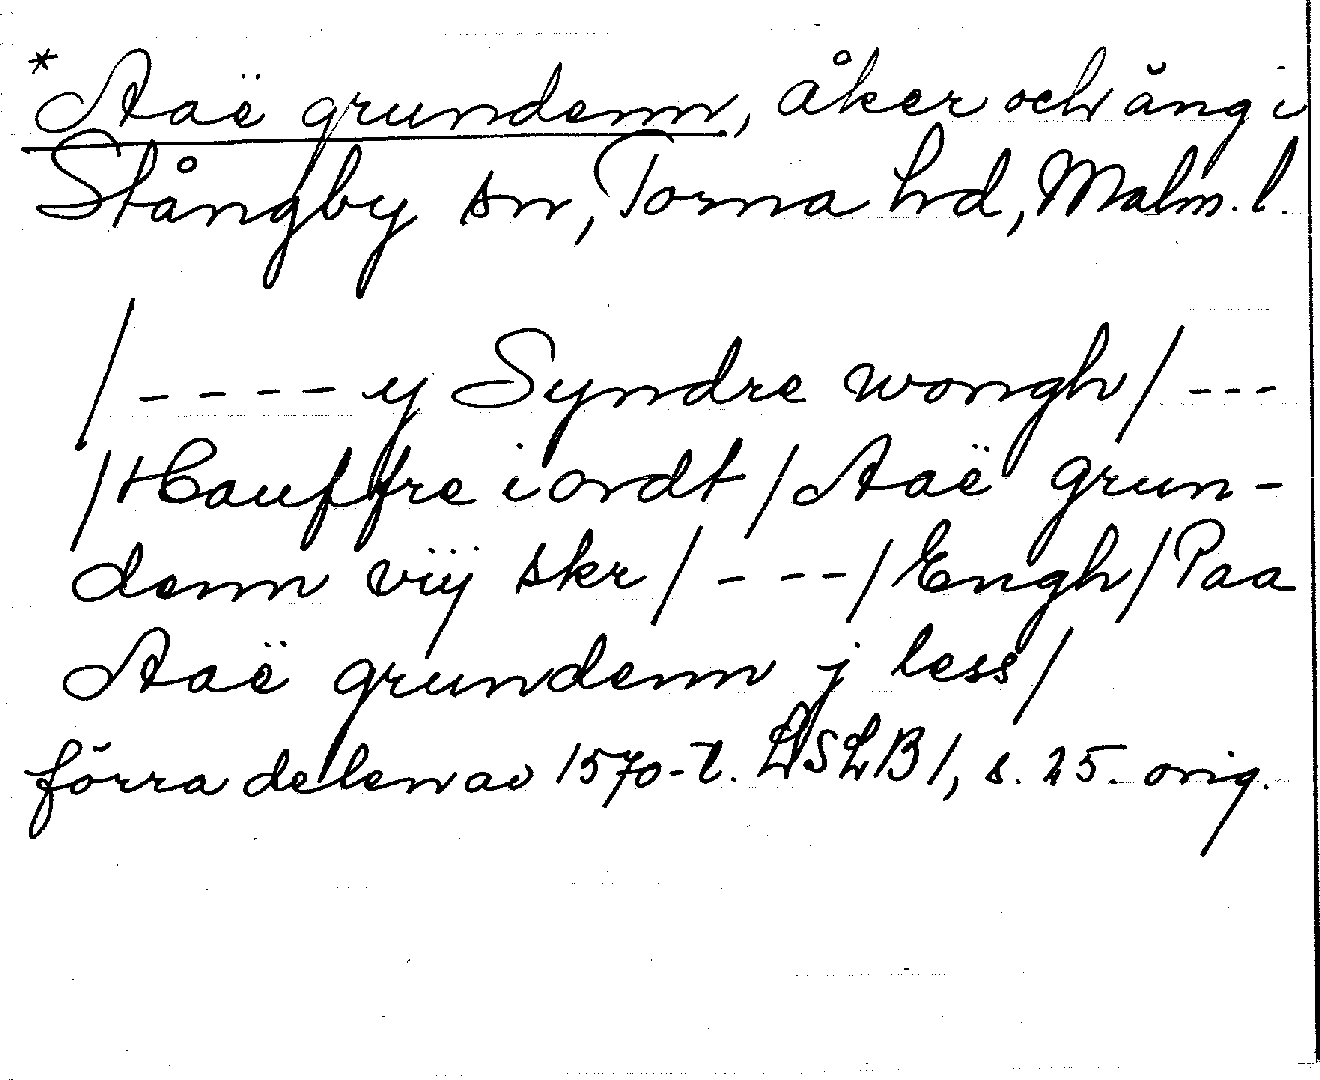 * Aaë grundenn, åker och äng i
Stångby sn, Torna hd, Malm. l.
/ - - - - y Syndre wongh / - - -
/ Hauffre iordt / Aaë grun-
denn vijj skr / - - - / Engh / Paa
Aaë grundenn j less /
förra delen av 1570-t. LSLB 1, s. 25. orig.